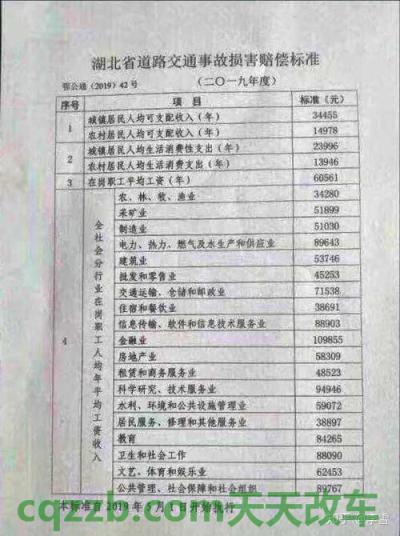 湖北省道路交通事故损害赔偿标准
鄂公通(2019)42号 (二〇一九年度)
序号 项目 标准(元)
1 城镇居民人均可支配收入(年) 34455
农村居民人均可支配收入(年) 14978
2 城镇居民人均生活消费性支出(年) 23996
农村居民人均生活消费支出(年) 13946
3 在岗职工平均工资(年) 60561
4 全社会分行业在岗职工人均年平均工资收入
农、林、牧、渔业 34280
采矿业 51899
制造业 51030
电力、热力、燃气及水生产和供应业 89643
建筑业 53746
批发和零售业 45253
交通运输、仓储和邮政业 71538
住宿和餐饮业 38691
信息传输、软件和信息技术服务业 88903
金融业 109855
房地产业 58309
租赁和商务服务业 48523
科学研究、技术服务业 94946
水利、环境和公共设施管理业 59072
居民服务、修理和其他服务业 38897
教育 84265
卫生和社会工作 88090
文艺、体育和娱乐业 62453
公共管理、社会保障和社会组织 89767
本标准自2019年5月1日开始执行
cqzzb.com天天改车